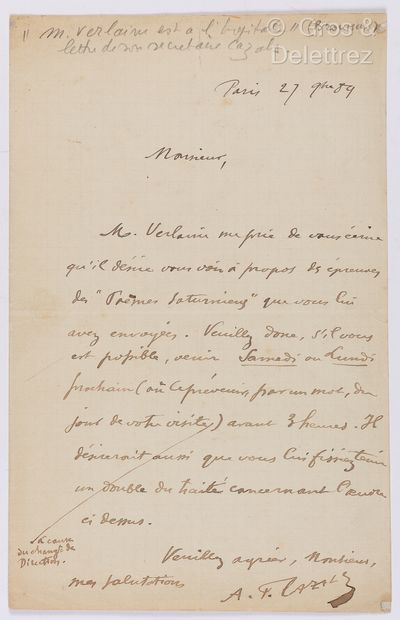 " M. Verlaine est à l'hôpital "
lettre de son secrétaire Cazals
© Gros &
Delettrez
Paris 27 9bre 89
Monsieur,
M. Verlaine me prie de vous écrire
qu'il désire vous voir à propos des épreuves
des "Poèmes Saturniens" que vous lui
avez envoyées. Veuillez donc, s'il vous
est possible, venir Samedi ou Lundi
prochain (ou le prévenir, par un mot, du
jour de votre visite) avant 3 heures. Il
désirerait aussi que vous lui fissiez tenir
un double du traité concernant l'œuvre
ci dessus.
à cause
du changt de
Direction.
Veuillez agréer, Monsieur,
mes salutations
A. F. Cazals